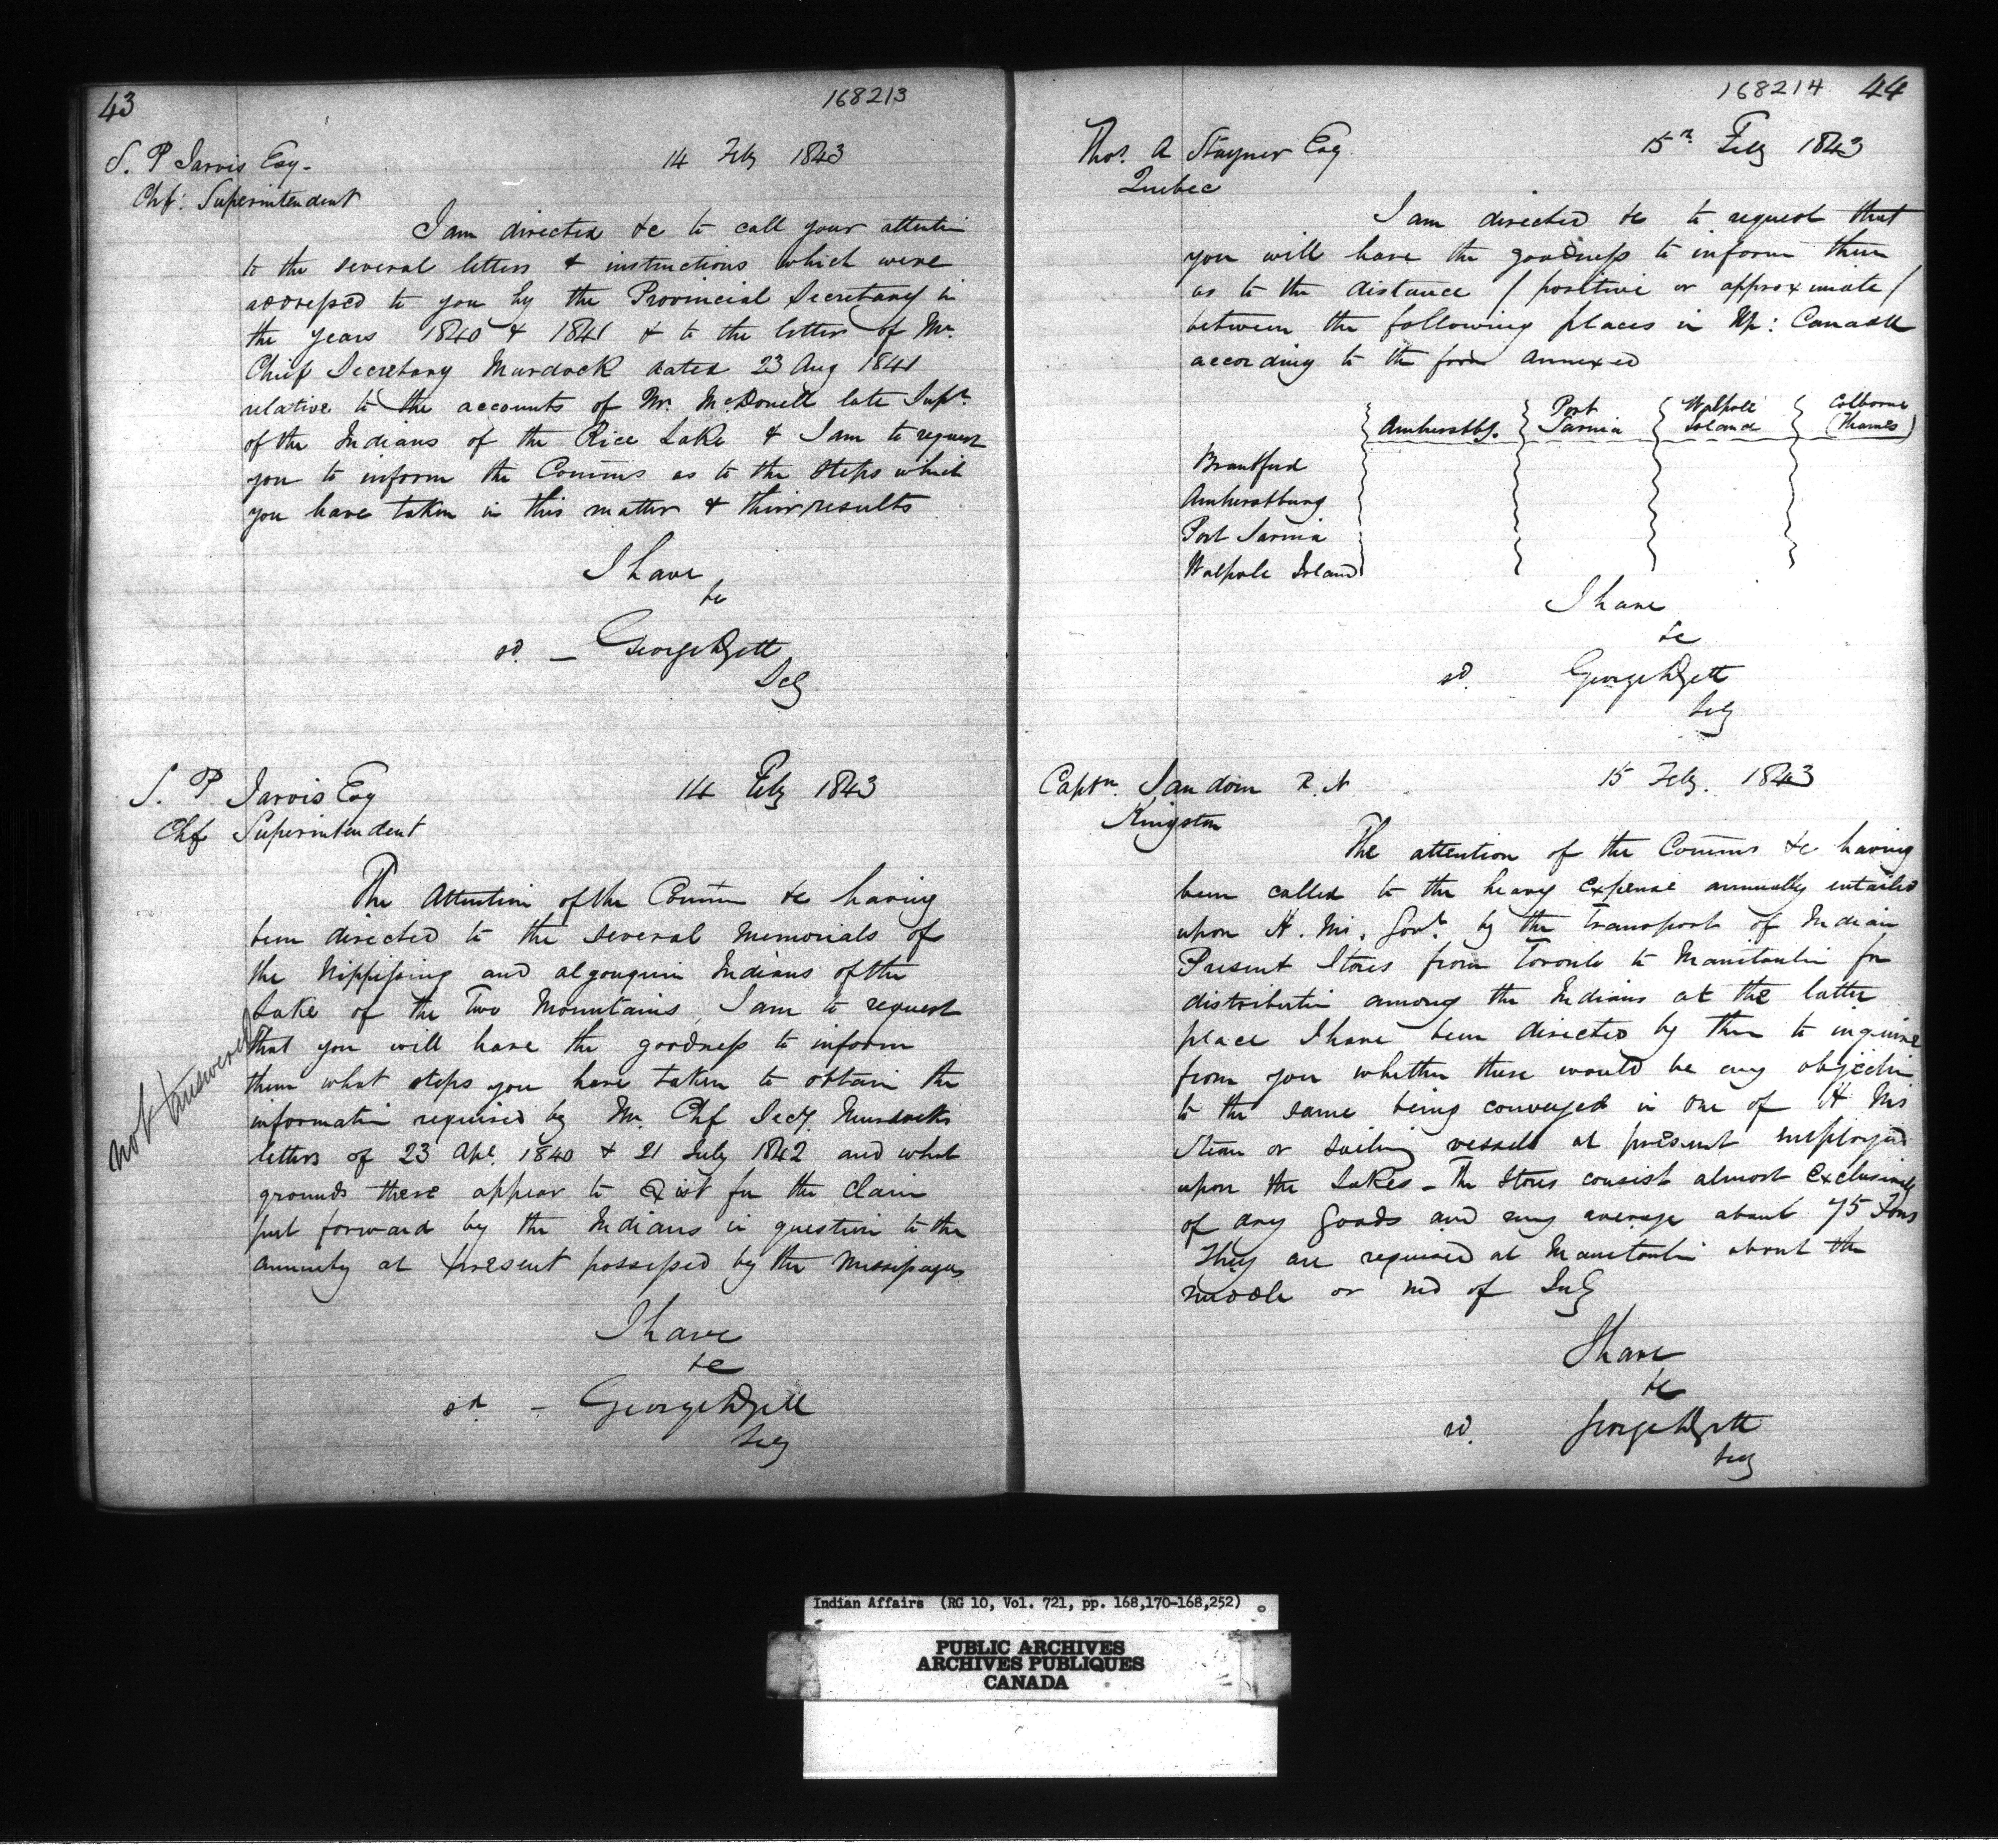 43
168213
S. P Jarvis Esq.
14 Feby 1843
Chf: Superintendent
I am directed &c to call your attentin
to the several letters & instructions which were
addressed to you by the Provincial Secretary in
the years 1840 & 1841 & to the letter of Mr.
Chief Secretary Murdock dated 23 Aug 1841
relative to the accounts of Mr. McDonell late Supt.
of the Indians of the Rice Lake & I am to request
you to inform the Comms as to the steps which
you have taken in this matter & their results
I have
&c
sd. — George
Secy
S. P. Jarvis Esq
14 Feby 1843
Chf Superintendent
The Attention of the Comm &c having
been directed to the several Memorials of
the Nippissing and algonquin Indians of the
Lake of the Two Mountains, I am to request
that you will have the goodness to inform
them what steps you have taken to obtain the
informatin required by Mr. Chf Secy. Murdocks
letters of 23 Apl. 1840 & 21 July 1842 and what
grounds there appear to Exist for the claim
put forward by the Indians in question to the
annuity at present possessed by the Missipagas
not answered
I have
&c
sd. — George
Secy
168214 44
Thos. A Stayner Esq.
15th Feby 1843
Quebec
I am directed &c to request that
you will have the goodness to inform them
as to the distance / positive or approximate /
between the following places in Up: Canada
according to the form annexed
Amherstbg. Port Sarnia Walpole Island Colborne (Thames)
Brantford
Amherstburg
Port Sarnia
Walpole Island
I have
&c
sd. George
Secy
Captn. Sandom R.N
15 Feby. 1843
Kingston
The attention of the Comms &c having
been called to the heavy expense annually entailed
upon H. M. Govt. by the transport of Indian
Present Stores from Toronto to Manitoulin for
distributin among the Indians at the latter
place I have been directed by them to inquire
from you whether there would be any objectin
to the same being conveyed in one of H Ms
Steam or Sailing vessels at present employed
upon the Lakes — The Stores consist almost exclusively
of dry Goods and may average about 75 Tons
They are required at Manitoulin about the
middle or end of July
I have
&c
sd. George
Secy
Indian Affairs (RG 10, Vol. 721, pp. 168,170-168,252)
PUBLIC ARCHIVES
ARCHIVES PUBLIQUES
CANADA